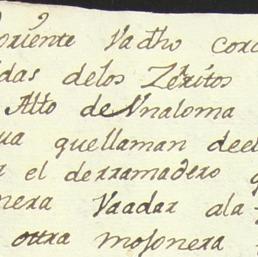 oriente Vadho cord
das delos Zerritos
Alto de Vnaloma
ua que llaman deel
r el derramadero q
nera Vaadar ala
otra mojonera